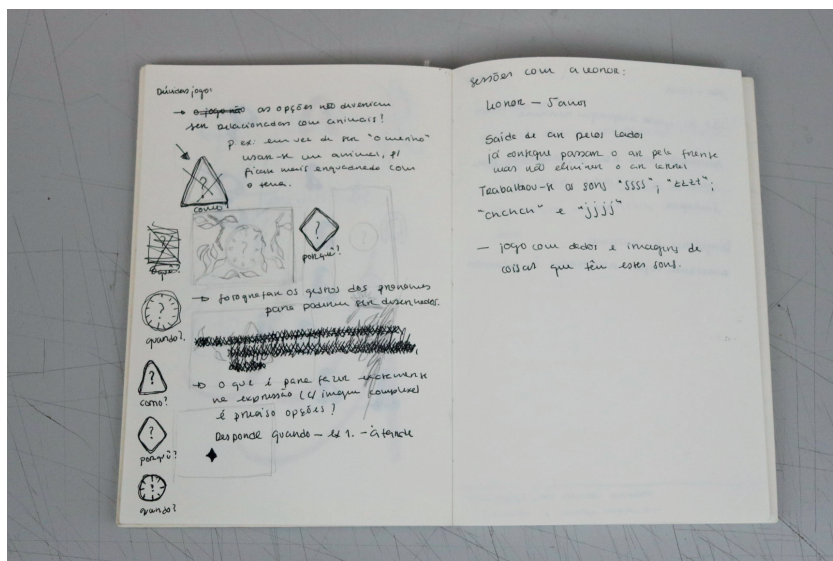 Dúvidas jogo:
→ o jogo não as opções não deveriam
ser relacionadas com animais?
p. ex: em vez de ser "o menino"
usar-se um animal, p/
ficar mais enquadrado com
o tema.
como?
porquê?
quando?
→ fotografar os gestos dos pronomes
para poderem ser desenhados.
→ o que é para fazer exatamente
na expressão (c/ imagem complexa)
é preciso opções?
como?
Responde quando — ex 1. - à tarde
porquê?
quando?
sessões com a Leonor:
Leonor — 5 anos
Saída de ar pelos lados
já consegue passar o ar pela frente
mas não eliminou o ar lateral
Trabalhou-se os sons "ssss"; "zzzz";
"chchch" e "jjjj"
— jogo com dados e imagens de
coisas que têm estes sons.